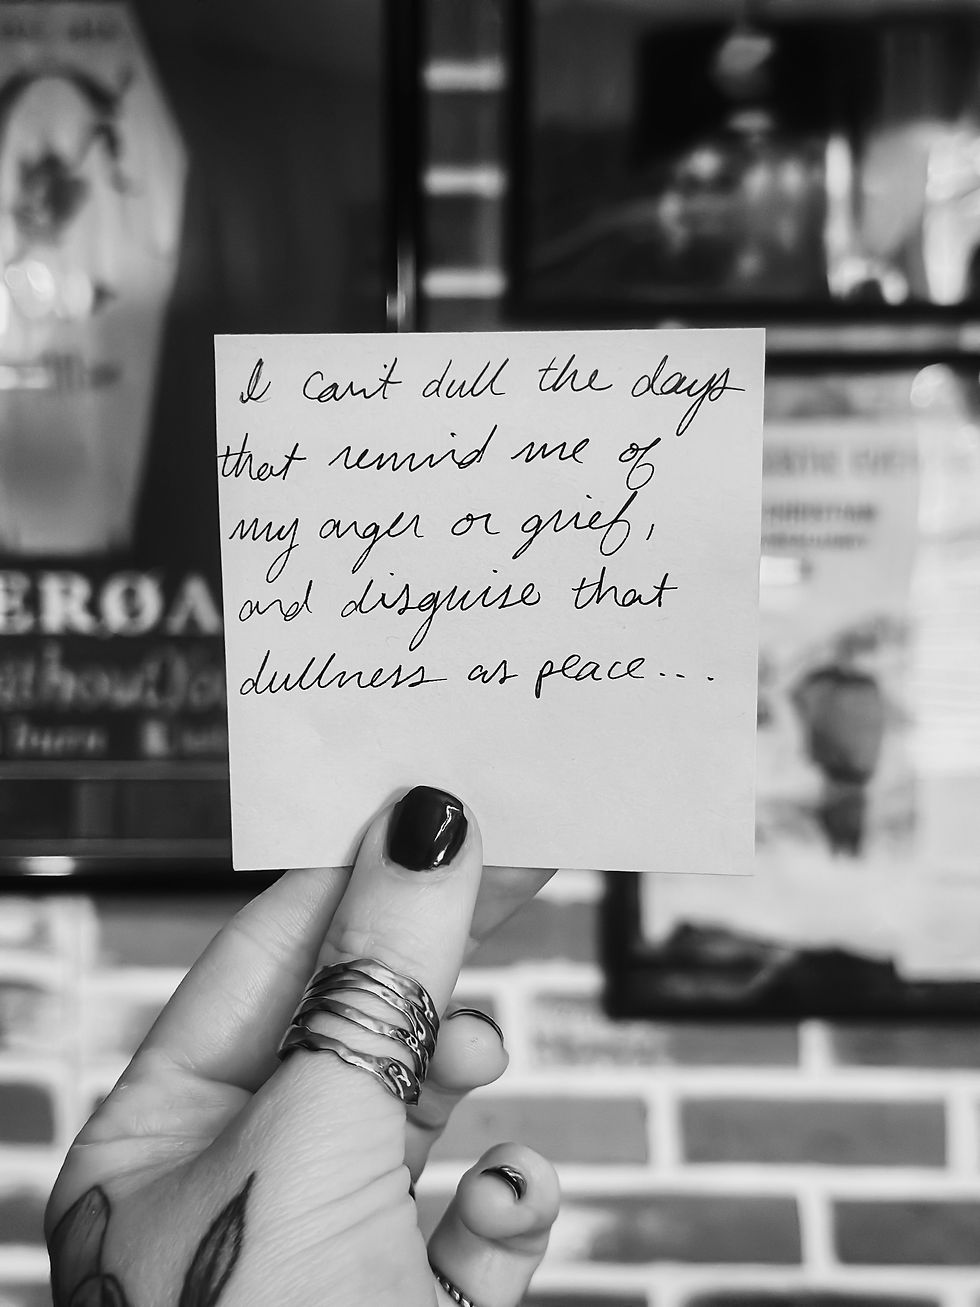 I can't dull the days
that remind me of
my anger or grief,
and disguise that
dullness as peace...
EROA
burn